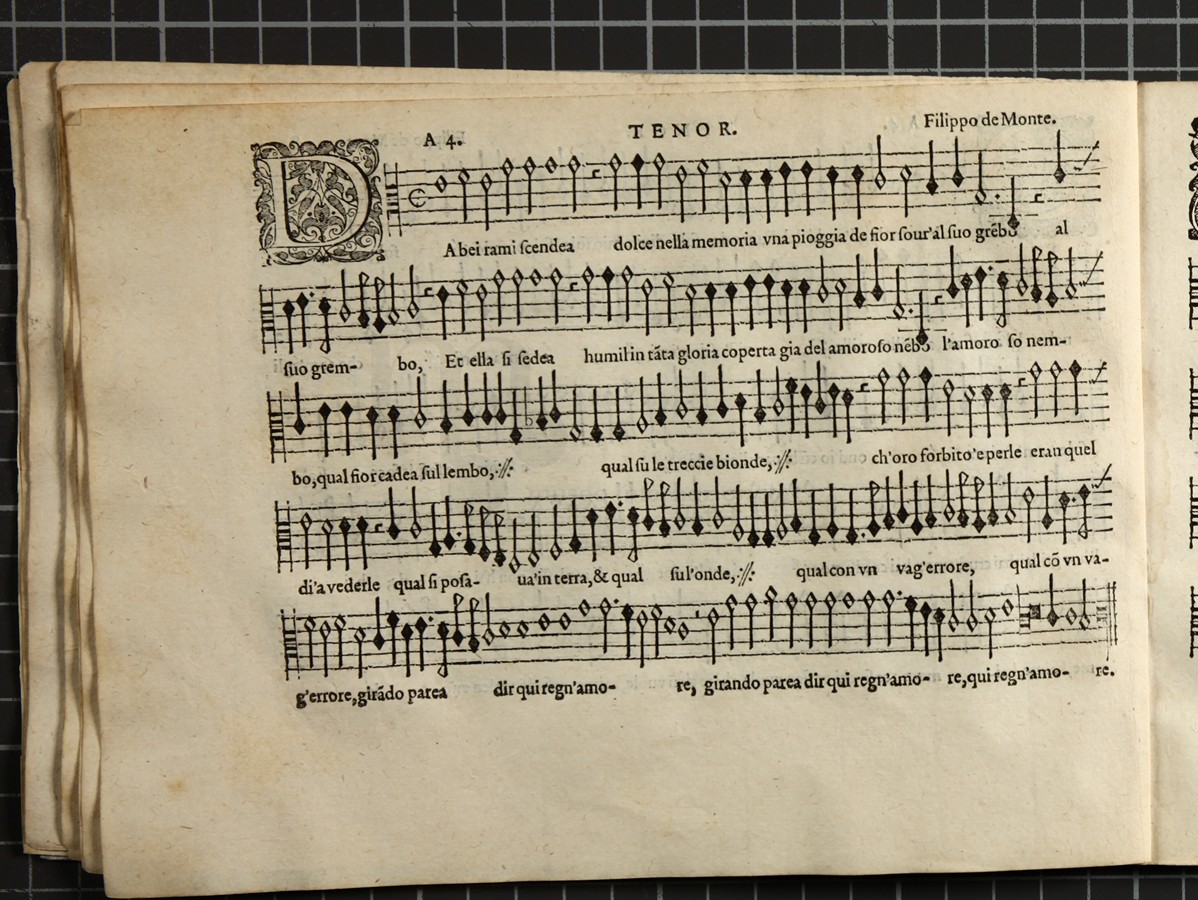 A 4.
TENOR.
Filippo de Monte.
DA bei rami ſcendea dolce nella memoria vna pioggia de fior ſour'al ſuo grẽbo al
ſuo grem- bo, Et ella ſi ſedea humil in tãta gloria coperta gia del amoroſo nẽbo l'amoro ſo nem-
bo, qual fior cadea ſul lembo, :||: qual ſu le treccie bionde, :||: ch'oro forbito'e perle eran quel
di'a vederle qual ſi poſa- ua'in terra, & qual ſul'onde, :||: qual con vn vag'errore, qual cõ vn va-
g'errore, girãdo parea dir qui regn'amo- re, girando parea dir qui regn'amo- re, qui regn'amo- re.